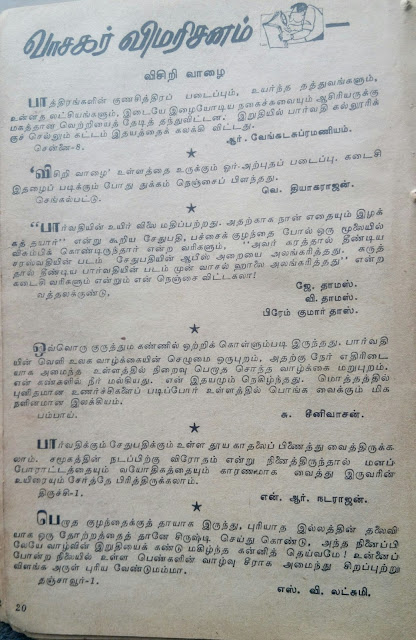 வாசகர் விமரிசனம்
விசிறி வாழை
பாத்திரங்களின் குணசித்திரப் படைப்பும், உயர்ந்த தத்துவங்களும்,
உன்னத லட்சியங்களும், இடையே இழையோடிய நகைச்சுவையும் ஆசிரியருக்கு
மகத்தான வெற்றியைத் தேடித் தந்துவிட்டன. இறுதியில் பார்வதி கல்லூரிக்
குச் செல்லும் கட்டம் இதயத்தைக் கலக்கி விட்டது.
சென்னை-8.
ஆர். வேங்கடசுப்ரமணியம்.
'விசிறி வாழை' உள்ளத்தை உருக்கும் ஓர் அற்புதப் படைப்பு. கடைசி
இதழைப் படிக்கும் போது துக்கம் நெஞ்சைப் பிளந்தது.
செங்கல்பட்டு.
வெ. தியாகராஜன்.
"பார்வதியின் உயிர் விலை மதிப்பற்றது. அதற்காக நான் எதையும் இழக்
கத் தயார்" என்று கூறிய சேதுபதி, பச்சைக் குழந்தை போல் ஒரு மூலையில்
விசும்பிக் கொண்டிருந்தார் என்ற வரிகளும், "அவர் கரத்தால் தீண்டிய
சரஸ்வதியின் படம் சேதுபதியின் ஆபீஸ் அறையை அலங்கரித்தது. கருத்
தால் தீண்டிய பார்வதியின் படம் முன் வாசல் ஹாலை அலங்கரித்தது" என்ற
கடைசி வரிகளும் என்றும் என் நெஞ்சை விட்டகலா!
வத்தலக்குண்டு,
ஜே. தாமஸ்.
வி. தாமஸ்.
பிரேம் குமார் தாஸ்.
ஒவ்வொரு குருந்தும கண்ணில் ஒற்றிக் கொள்ளும்படி இருந்தது. பார்வதி
யின் வெளி உலக வாழ்க்கையின் செழுமை ஒருபுறம், அதற்கு நேர் எதிரிடை
யாக அமைந்த உள்ளத்தில் நிறைவு பெறாத சொந்த வாழ்க்கை மறுபுறம்.
என் கண்களில் நீர் மல்கியது. என் இதயமும் நெகிழ்ந்தது. மொத்தத்தில்
புனிதமான உணர்ச்சிகளைப் படிப்போர் உள்ளத்தில் பொங்க வைக்கும் மிக
நளினமான இலக்கியம்.
பம்பாய்.
சு. சீனிவாசன்.
பார்வதிக்கும் சேதுபதிக்கும் உள்ள தூய காதலைப் பிணைத்து வைத்திருக்க
லாம். சமூகத்தின் நடப்பிற்கு விரோதம் என்று நினைத்திருந்தால் மனப்
போராட்டத்தையும் வயோதிகத்தையும் காரணமாக வைத்து இருவரின்
உயிரையும் சேர்த்தே பிரித்திருக்கலாம்.
திருச்சி-1.
என். ஆர். நடராஜன்.
பெறாத குழந்தைக்குத் தாயாக இருந்து, புரியாத இல்லத்தின் தலைவி
யாக ஒரு தோற்றத்தைத் தானே சிருஷ்டி செய்து கொண்டு, அந்த நினைப்பி
லேயே வாழ்வின் இறுதியைக் கண்டு மகிழ்ந்த கன்னித் தெய்வமே! உன்னைப்
போன்ற நிலையில் உள்ள பெண்களின் வாழ்வு சீராக அமைந்து சிறப்புற்று
விளங்க அருள் புரிய வேண்டுமம்மா.
தஞ்சாவூர்-1.
எஸ். வி. லட்சுமி.
20